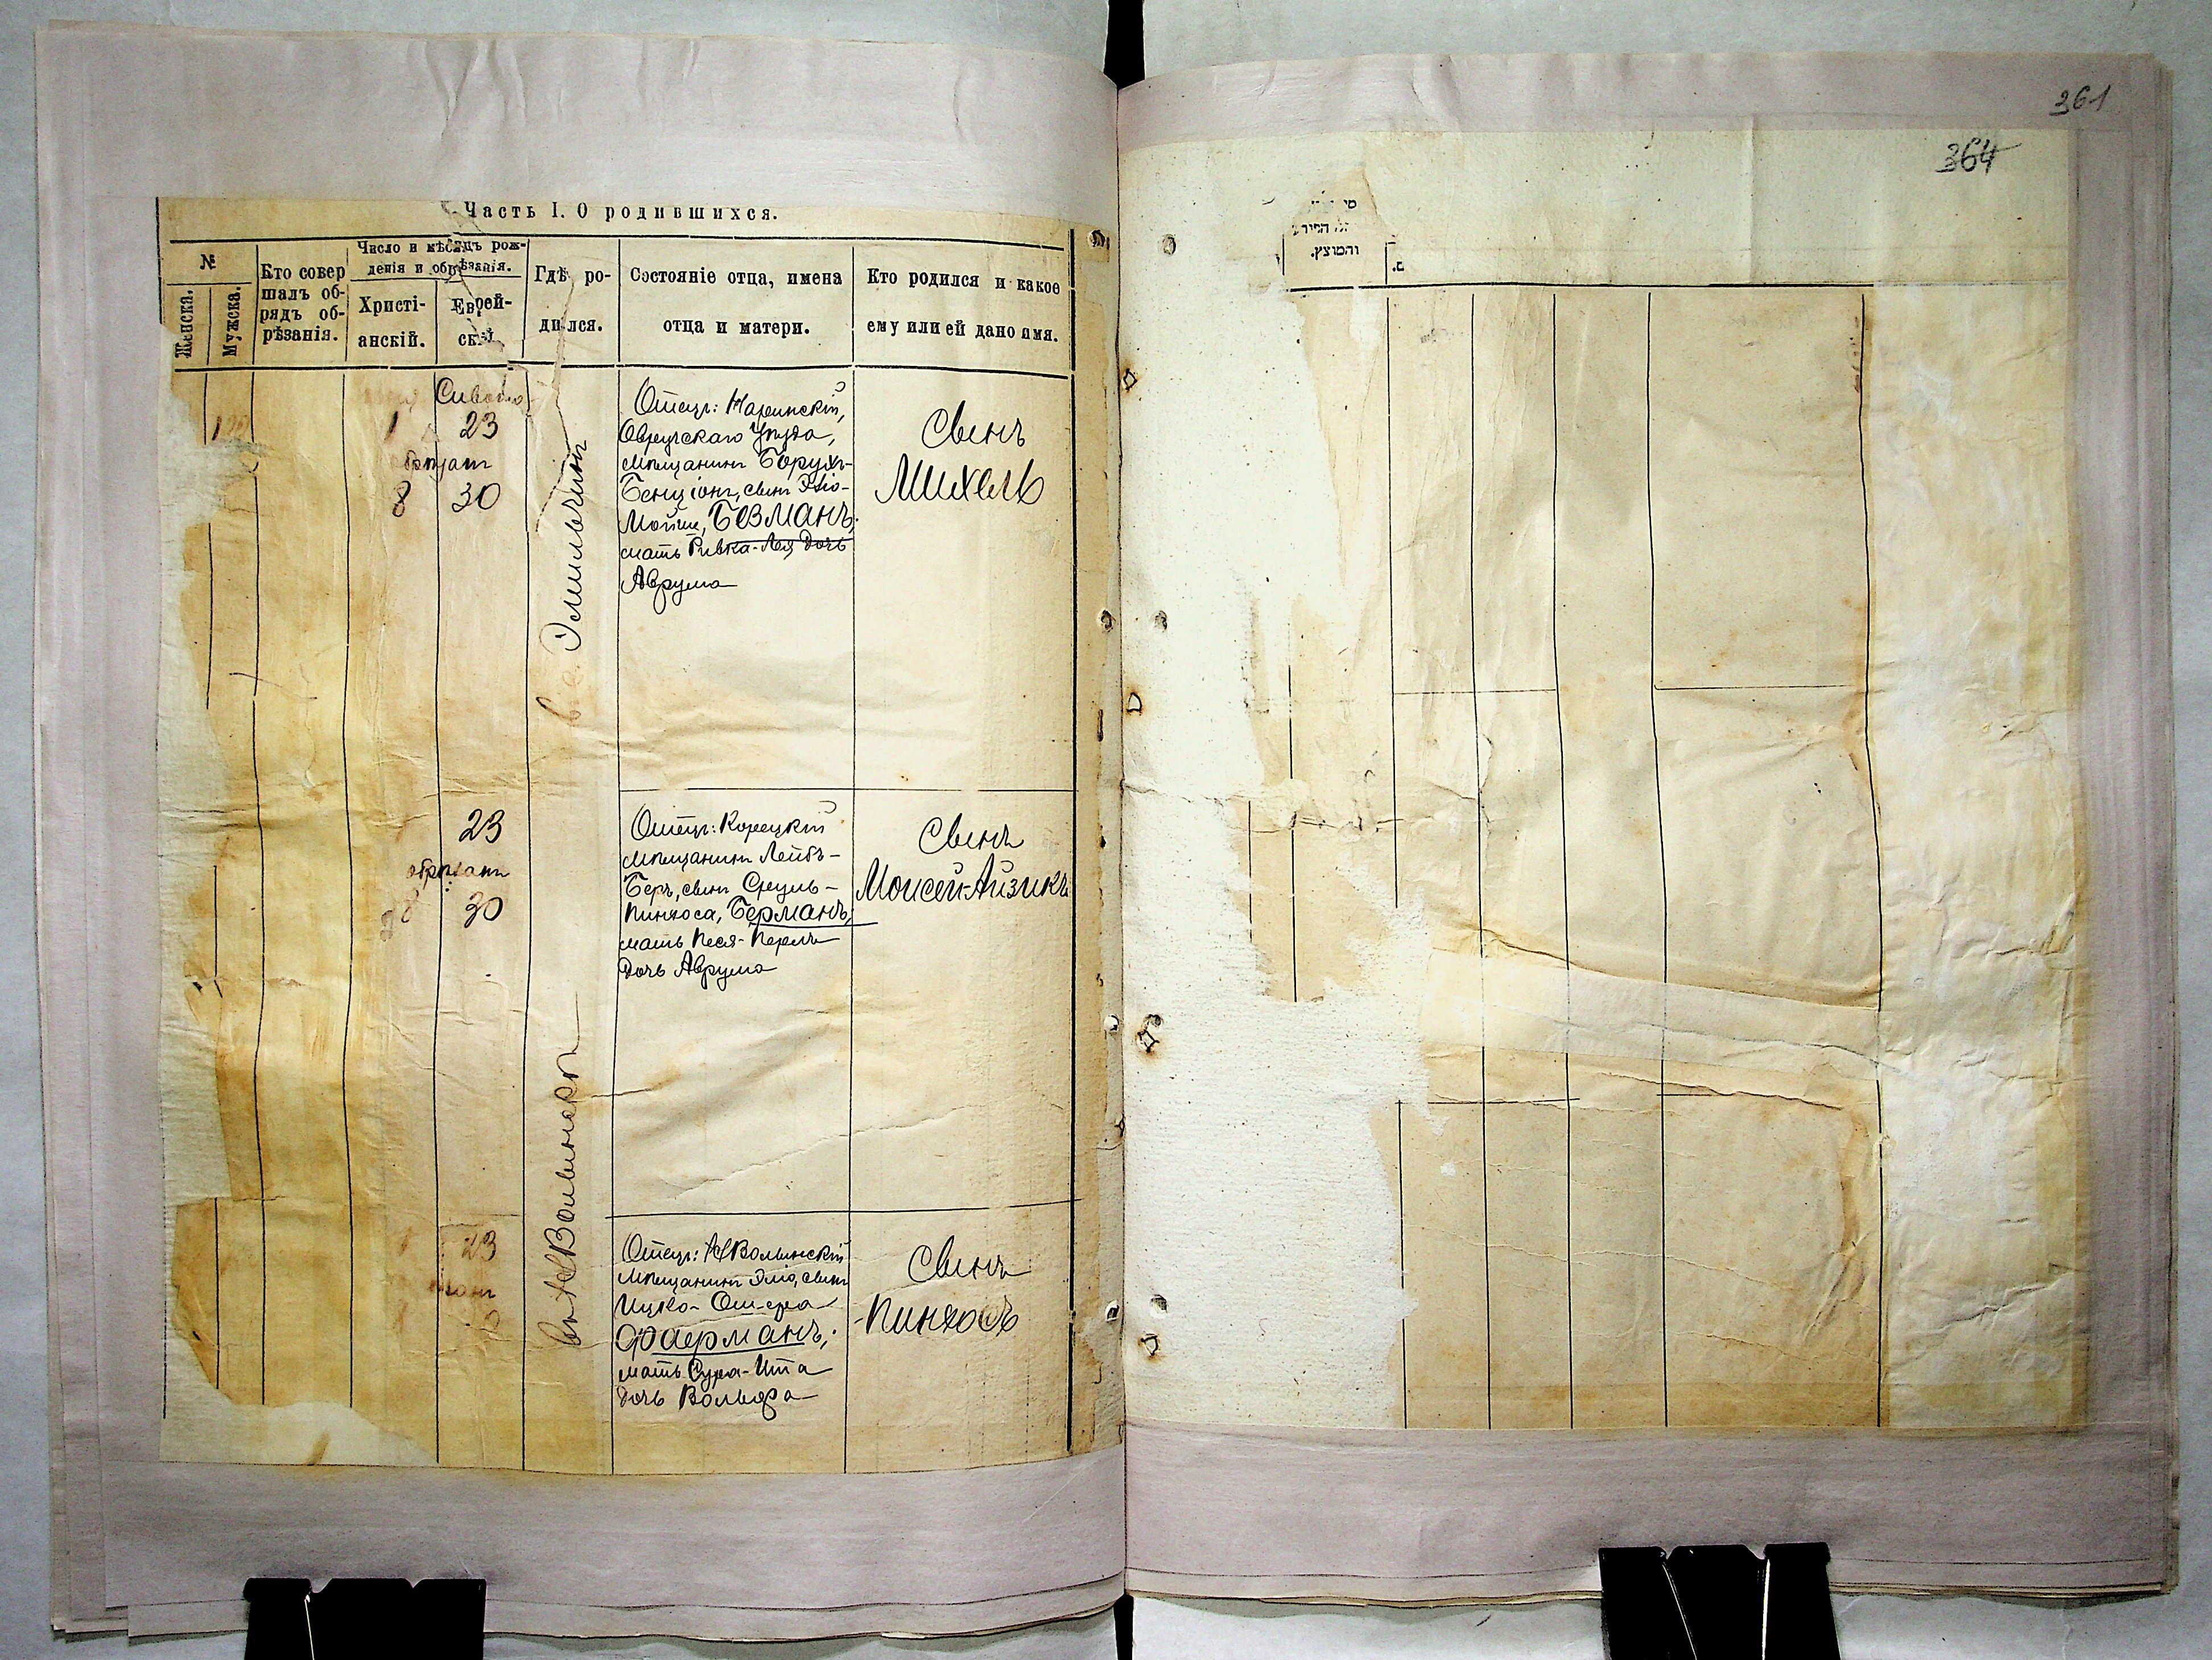 Часть I. О родившихся.
№
Женска.
Мужска.
Кто совер
шалъ об-
рядъ об-
рѣзанія.
Число и мѣсяцъ рож-
денія и обрѣзанія.
Христі-
анскій.
Еврей-
скій.
Гдѣ ро-
дился.
Состояніе отца, имена
отца и матери.
Кто родился и какое
ему или ей дано имя.
Сивана
1 23
обрѣзанъ
8 30
Эмильчинѣ
Отецъ: Наринскій,
Овручскаго уѣзда,
мѣщанинъ Борухъ-
Бенціонъ, сынъ Эліо-
Мойше, Безманъ,
мать Ривка-Лея дочь
Аврума
Сынъ
Михель
23
обрѣзанъ
8 30
Отецъ: Корецкій
мѣщанинъ Лейбъ-
Беръ, сынъ Сруль-
Пинхоса, Берманъ,
мать Песя-Перль
дочь Аврума
Сынъ
Моисей-Айзикъ
въ НВолынскѣ
23
Отецъ: НВолынскій
мѣщанинъ Эліо, сынъ
Ицко-Ошера
Фаерманъ,
мать Сура-Ита
дочь Вольфа
Сынъ
Пинхосъ
361
364
והמוצץ.